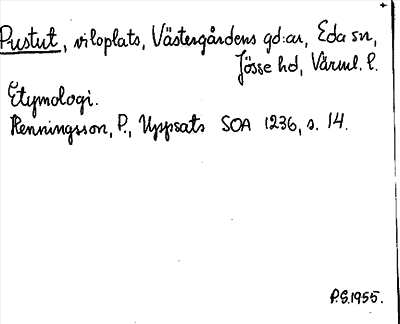 Pustut, viloplats, Västergårdens gd:ar, Eda sn,
Jösse hd, Värml. l.
Etymologi.
Henningsson, P., Uppsats SOA 1236, s. 14.
P.G.1955.